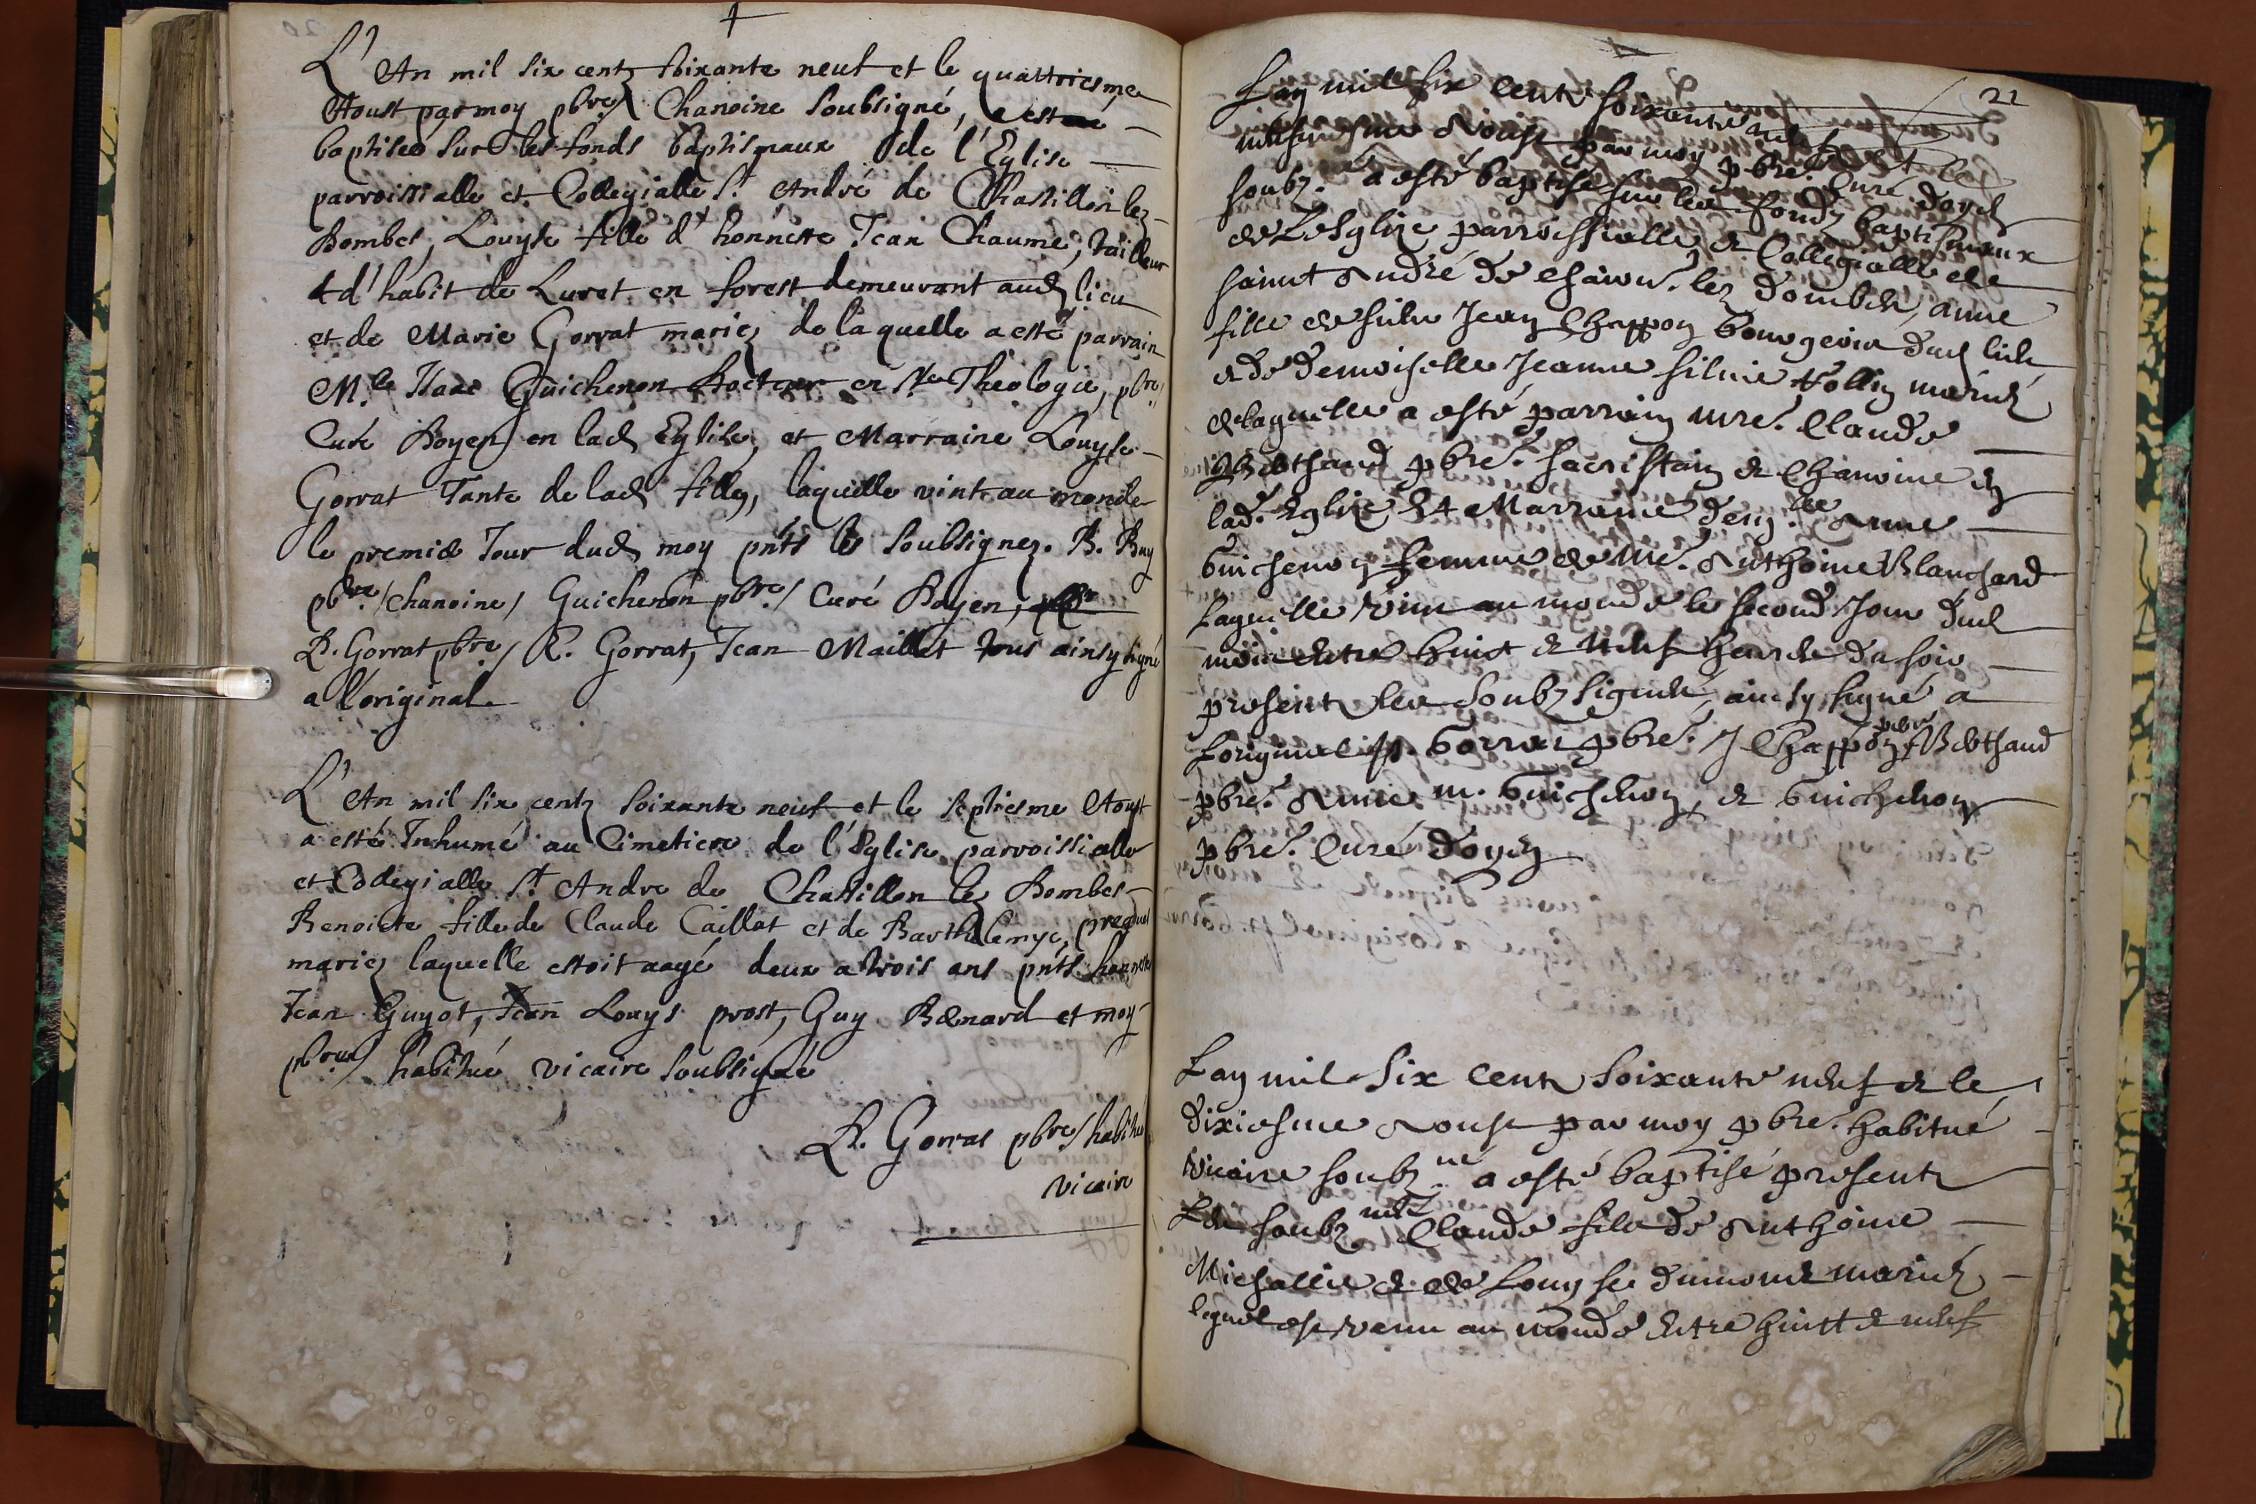 L'An mil six centz soixante neuf et le quattriesme
Aoust par moy pbre/ Chanoine soubsigné, a esté
baptisee sur les fonds baptismaux de l'Eglise
parroissialle et Collegialle St André de Chastillon lez
Dombes, Louyse fille d' honneste Jean Chaume, tailleur
d'habit de Luret en forest demeurant aud lieu
et de Marie Gorrat mariez de laquelle a esté parrain
Mre Isaac Guichenon Docteur en Ste Theologie, pbre/
Curé Doyen en lad Eglise, et Marraine Louyse
Gorrat Tante de lad fille, laquelle vint au monde
le premier Jour dud moy pnts les soubsignez. B. Buy
pbre/ chanoine/ Guichenon pbre/ Curé Doyen,
B. Gorrat pbre/ R. Gorrat, Jean Maillet tous ainsy signé
a l'original
L'An mil six centz soixante neuf et le septiesme Aoust
a esté Inhumé au Cimetiere de l'Eglise parroissialle
et Collegialle St Andre de Chastillon lez Dombes
Benoicte fille de Claude Caillat et de Barthelemye
mariez laquelle estoit aagé deux a trois ans pnts honnestes
Jean Guyot, Jean Louys prost, Guy Bernard et moy
pbre/ habitué vicaire soubsigné
B. Gorrat pbre/ habitué
vicaire
21
Lan mil six cent soixante neuf et le
Aoust par moy pbre. Curé doyen
soubz. a esté baptisé sur les fondz baptismaux
de Lesglize parroissialle et Collegialle de
saint André de chaon. lez dombes, anne
fille de sieur Jean Chappon bourgeois dud lieu
et de demoiselle Jeanne silvie tollin mariez
de laquelle a esté parrain mre. Claude
Berthaud pbre. sacristain et Chanoine en
lad. Eglize Et Marraine dem.lle Anne
Guichenon femme de me. Anthoine Blanchard
Laquelle vint au monde le second Jour dud
mois entre huict et neuf heures du soir
present les soubzsignés, ainsy signé a
Loriginal p. Gorrat pbre. J Chappon pere, Berthaud
pbre. Anne m. Guichenon, et Guichenon
pbre. Curé doyen
Lan mil six cent soixante neuf et le
dixiesme Aoust par moy pbre. habitué
Vicaire soubz.né a esté baptisé present
Les soubz.nés Claude filz de Anthoine
Michallie et de Louyse dumond mariez
lequel est venu au monde entre huict et neuf